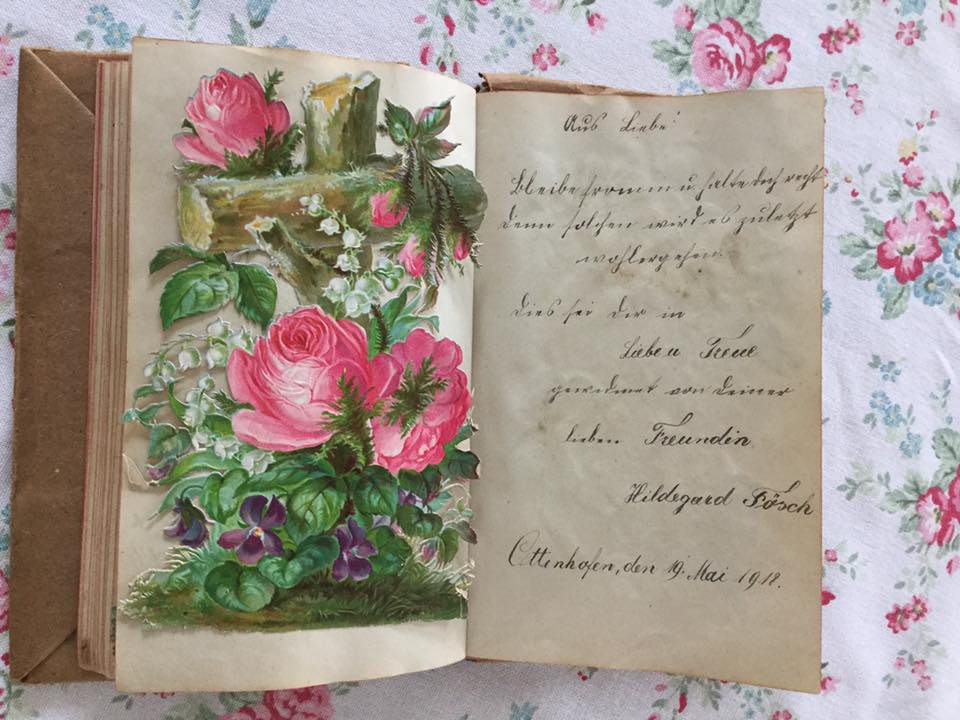 Aus Liebe!
Bleibe fromm u. halte dich recht
denn solchen wird es zuletzt
wohlergehen.
Dies sei dir in
Liebe u Treue
gewidmet von deiner
lieben Freundin
Hildegard Fösch
Ottenhofen, den 19. Mai 1918.